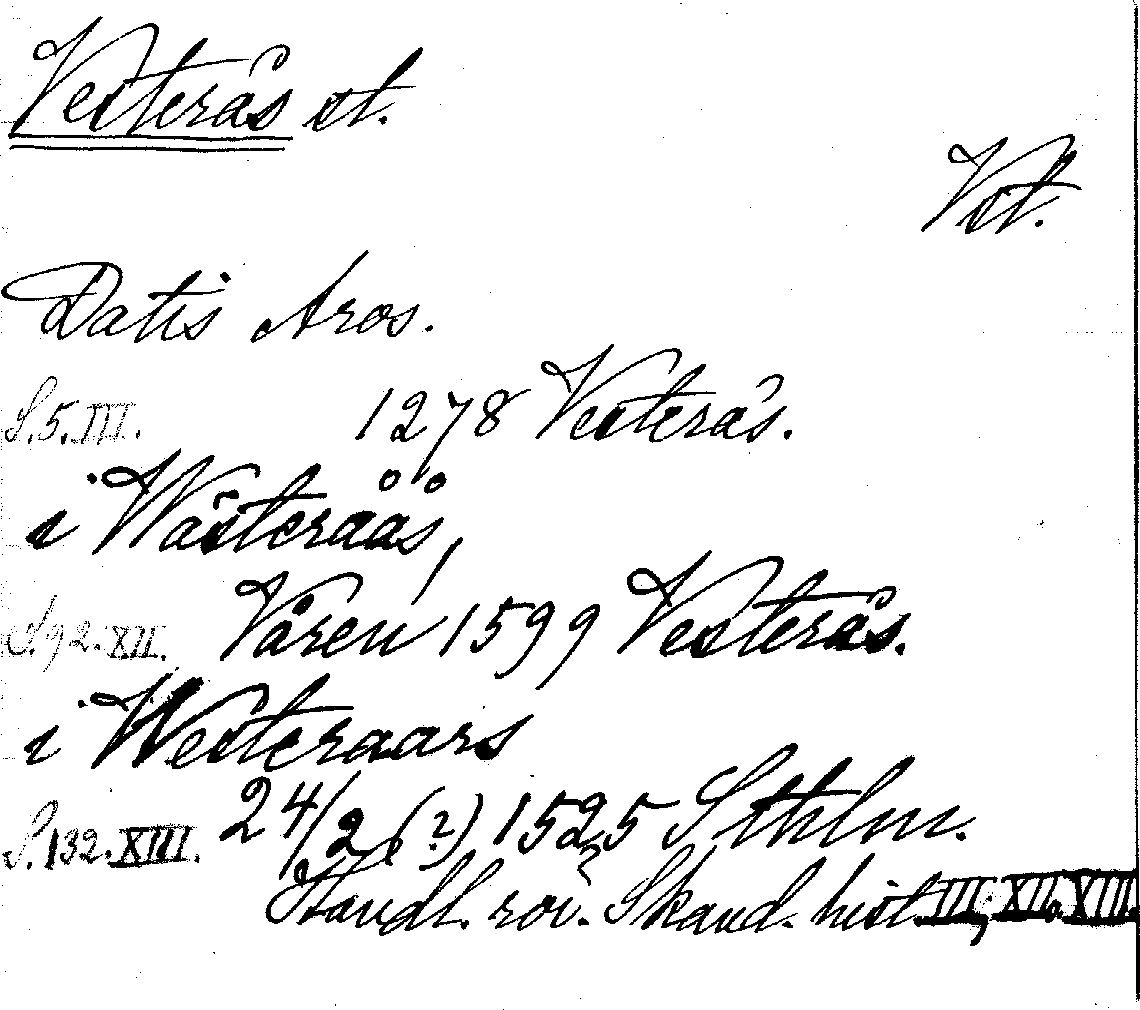 Vesterås st.
Vst.
Datis Aros.
S. 5. III. 1278 Vesterås.
i Wästeråås,
S. 92. XII. Våren 1599 Vesterås.
i Westeraars
S. 132. XIII. 24/2 (?) 1525 Sthlm.
Handl. rör. Skand. hist. III, XII, XIII.